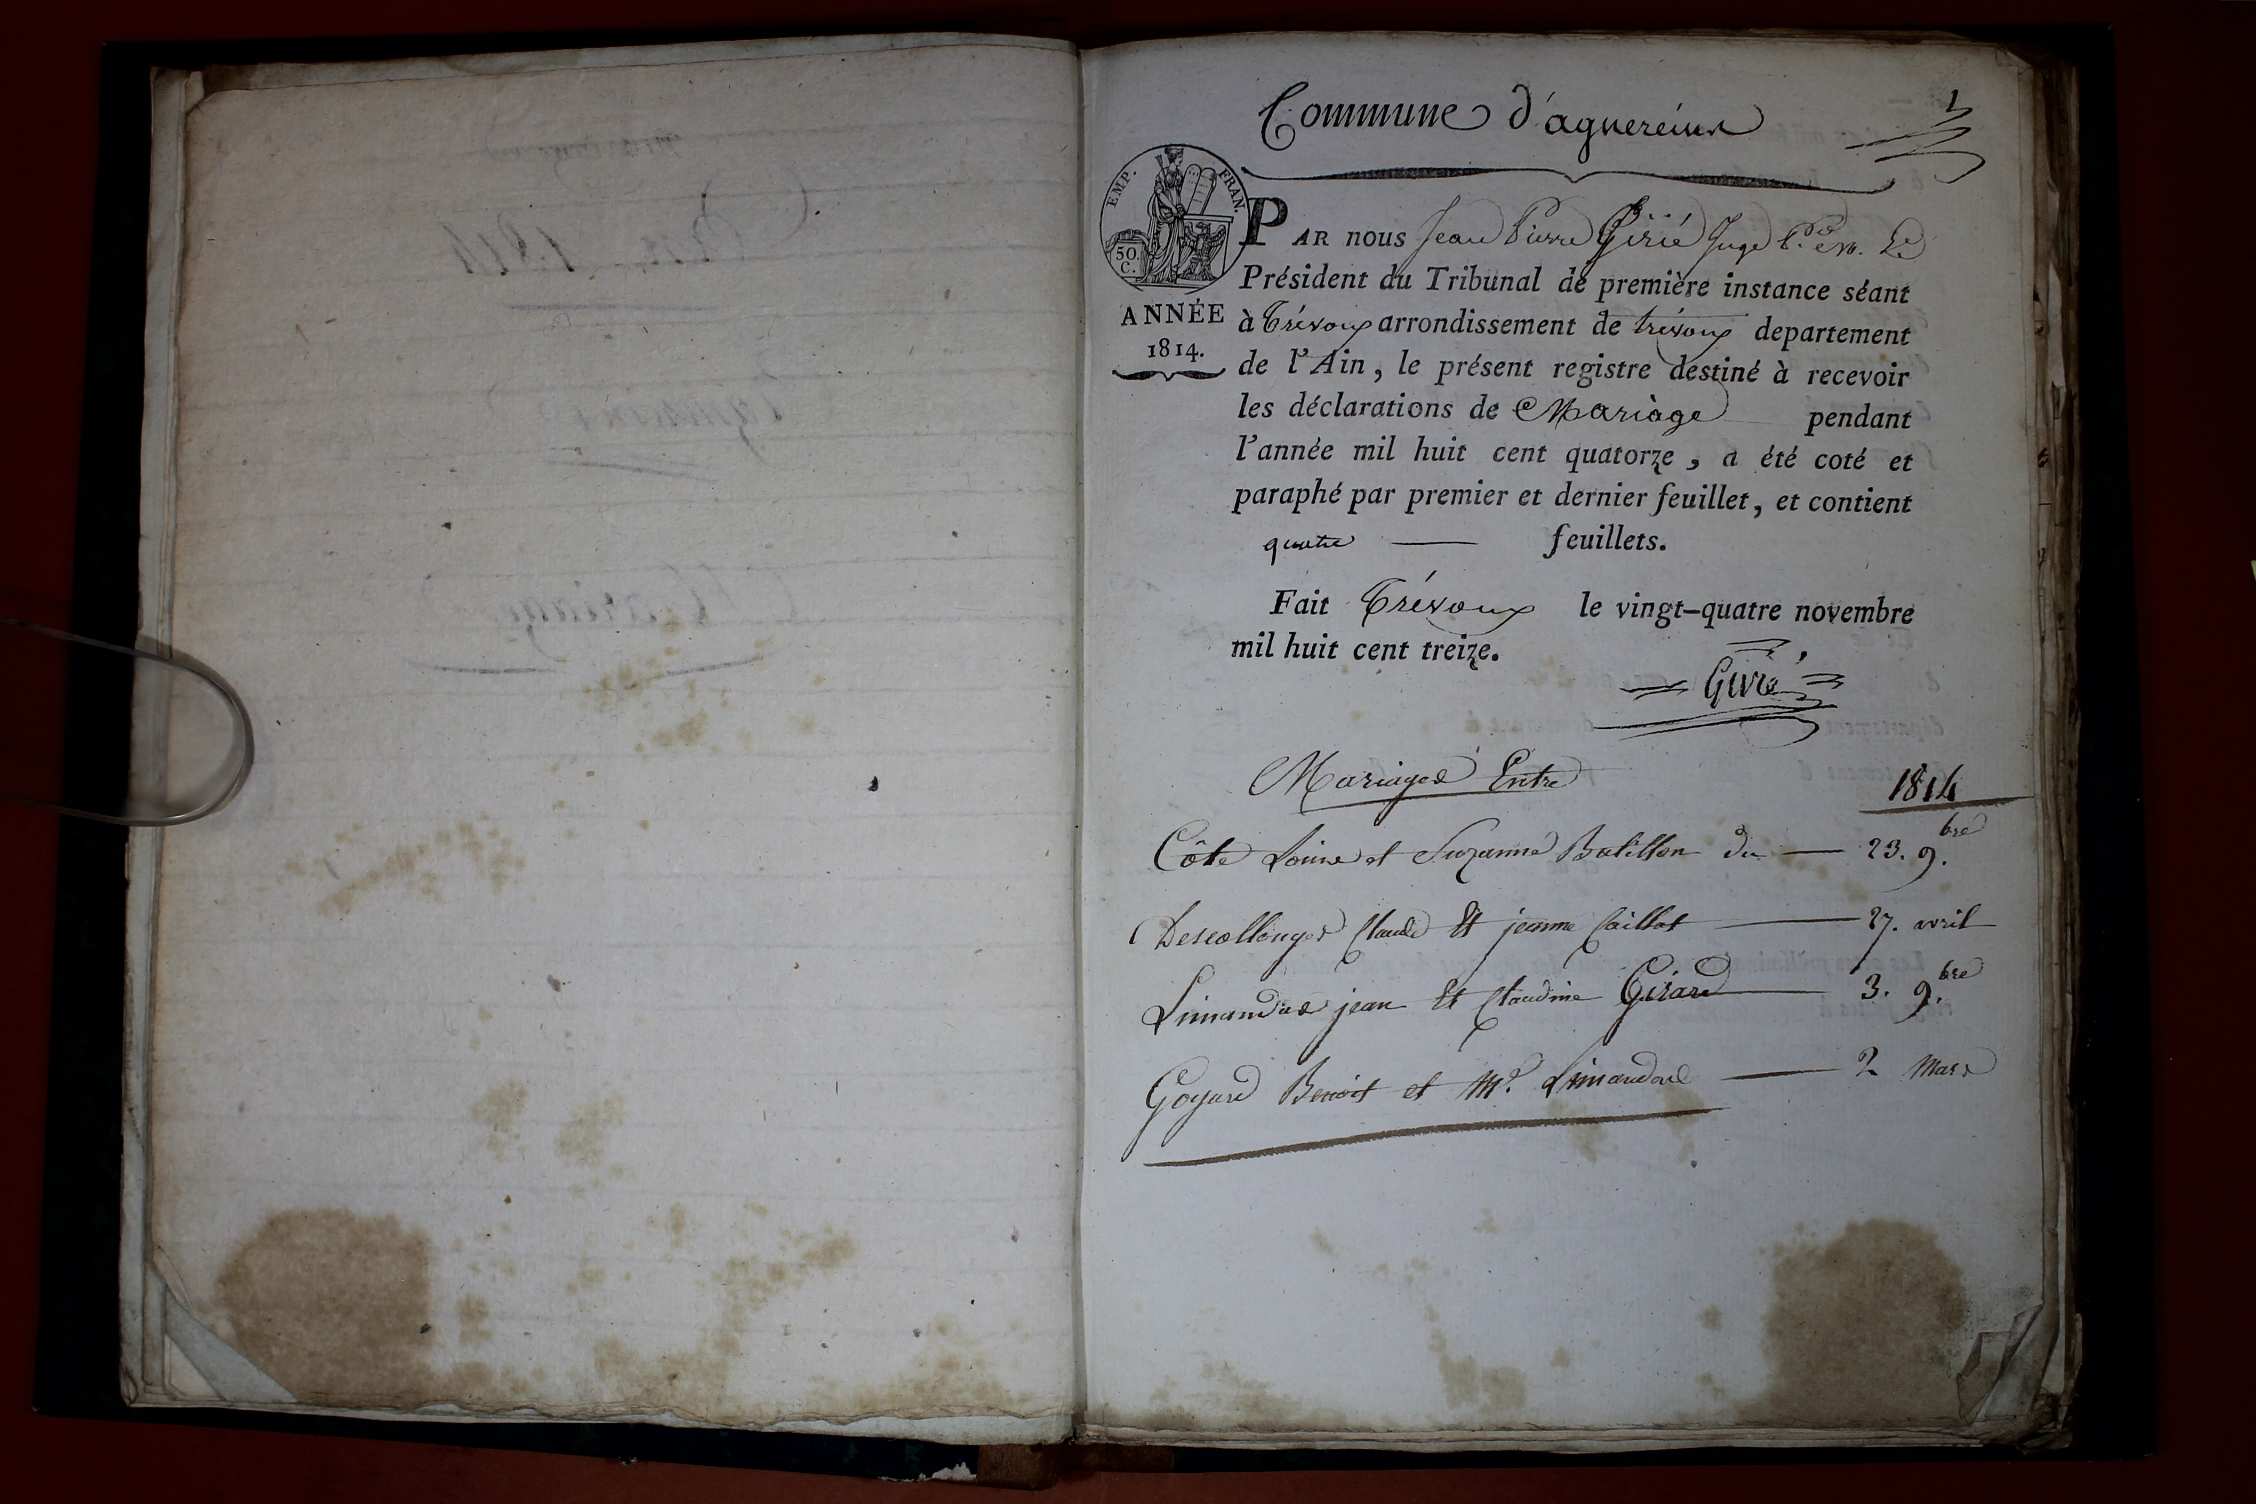 Commune d'agnereins
1
EMP. FRAN.
50 C.
ANNÉE
1814.
PAR nous Jean Pierre Girié Juge
Président du Tribunal de première instance séant
à Trévoux arrondissement de trévoux departement
de l'Ain, le présent registre destiné à recevoir
les déclarations de Mariage pendant
l'année mil huit cent quatorze, a été coté et
paraphé par premier et dernier feuillet, et contient
quatre — feuillets.
Fait Trévoux le vingt-quatre novembre
mil huit cent treize.
Mariages Entre 1814
Côte Louis et Suzanne Batillon du — 23. 9.bre
Descollonges Claude Et jeanne Caillat — 27. avril
Limandas jean Et Claudine Girard — 3. 9.bre
Goyard Benoit et Mie Limandas — 2 Mars